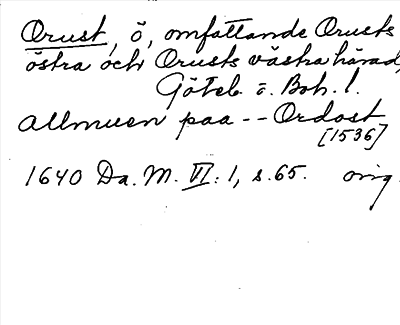 Orust, ö, omfattande Orusts
östra och Orusts västra härad,
Göteb. o. Boh. l.
allmuen paa -- Ordost
[1536]
1640 Da. M. VI: 1, s. 65. orig.